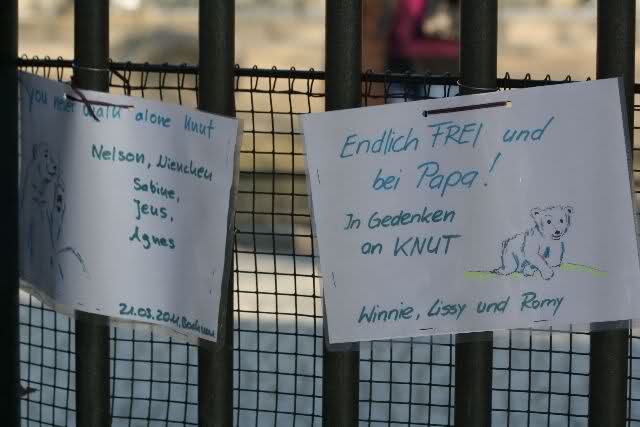 you never walk alone Knut
Nelson, Wienchen
Sabine,
Jens,
Agnes
21.03.2011, Bochum
Endlich FREI und
bei Papa!
In Gedenken
an KNUT
Winnie, Lissy und Romy